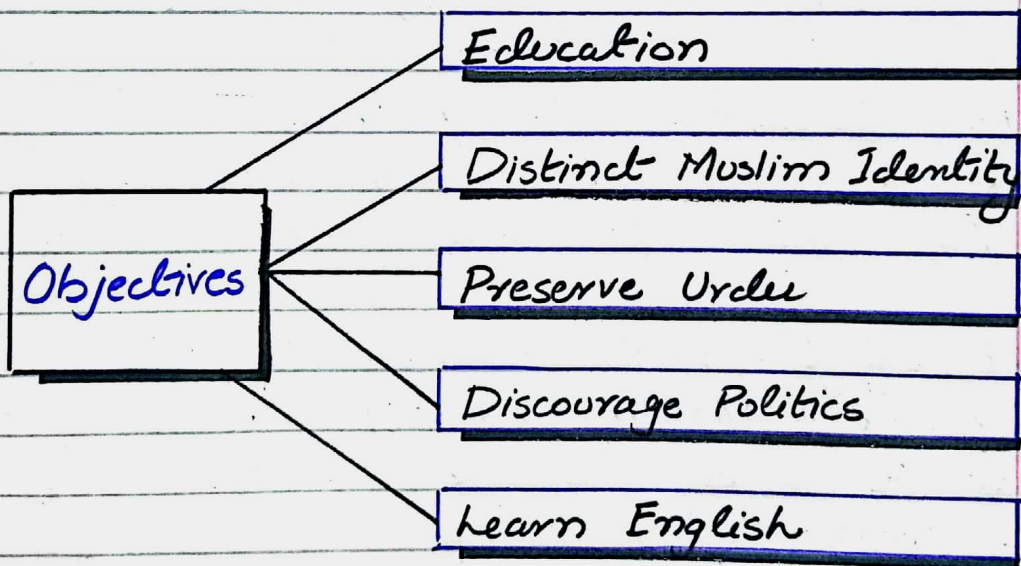 Objectives
Education
Distinct Muslim Identity
Preserve Urdu
Discourage Politics
Learn English